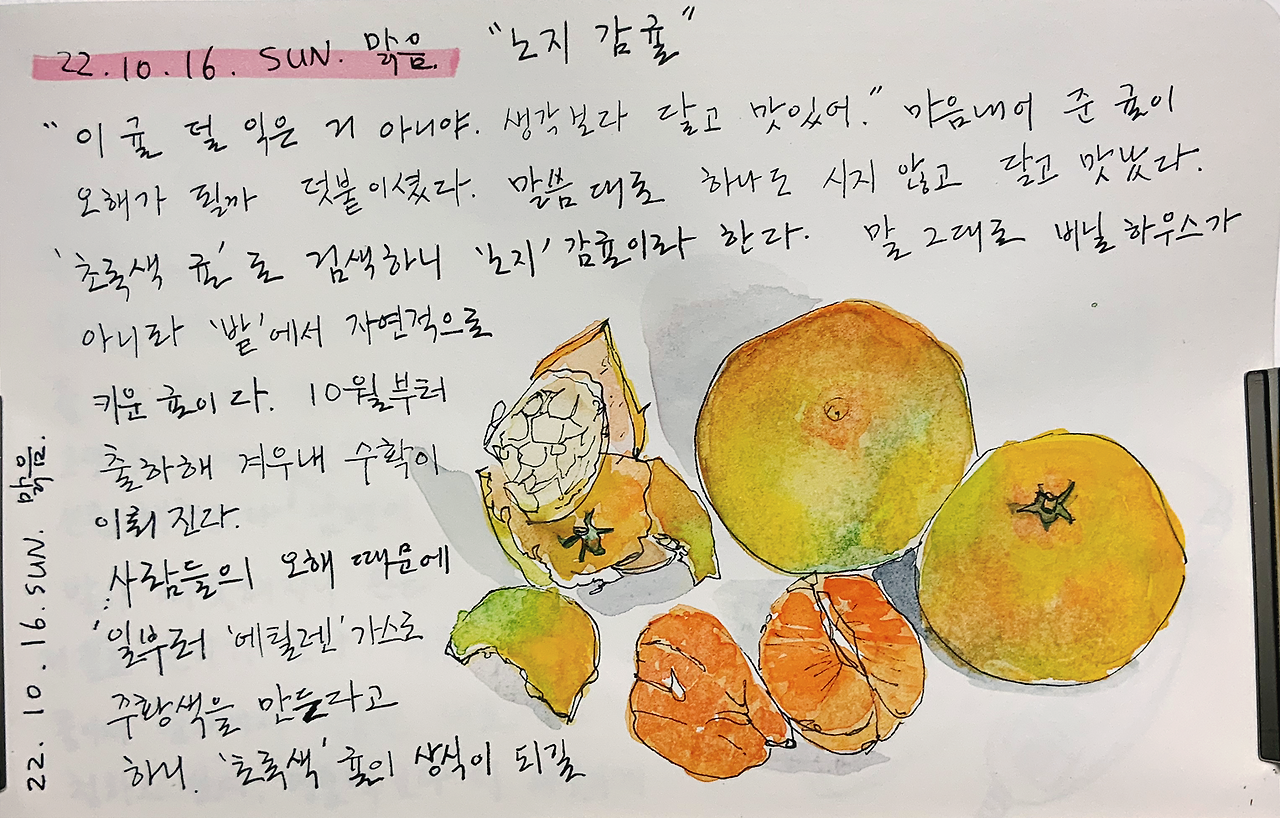 22.10.16. SUN. 맑음. "노지 감귤"
"이 귤 덜 익은 거 아니야. 생각보다 달고 맛있어." 마음내어 준 귤이
오해가 될까 덧붙이셨다. 말씀대로 하나도 시지 않고 달고 맛났다.
'초록색 귤'로 검색하니 '노지' 감귤이라 한다. 말 그대로 비닐하우스가
아니라 '밭'에서 자연적으로
키운 귤이다. 10월부터
출하해 겨우내 수확이
이뤄진다.
사람들의 오해 때문에
일부러 '에틸렌' 가스로
주황색을 만든다고
하니. '초록색' 귤이 상식이 되길
22.10.16.SUN. 맑음.